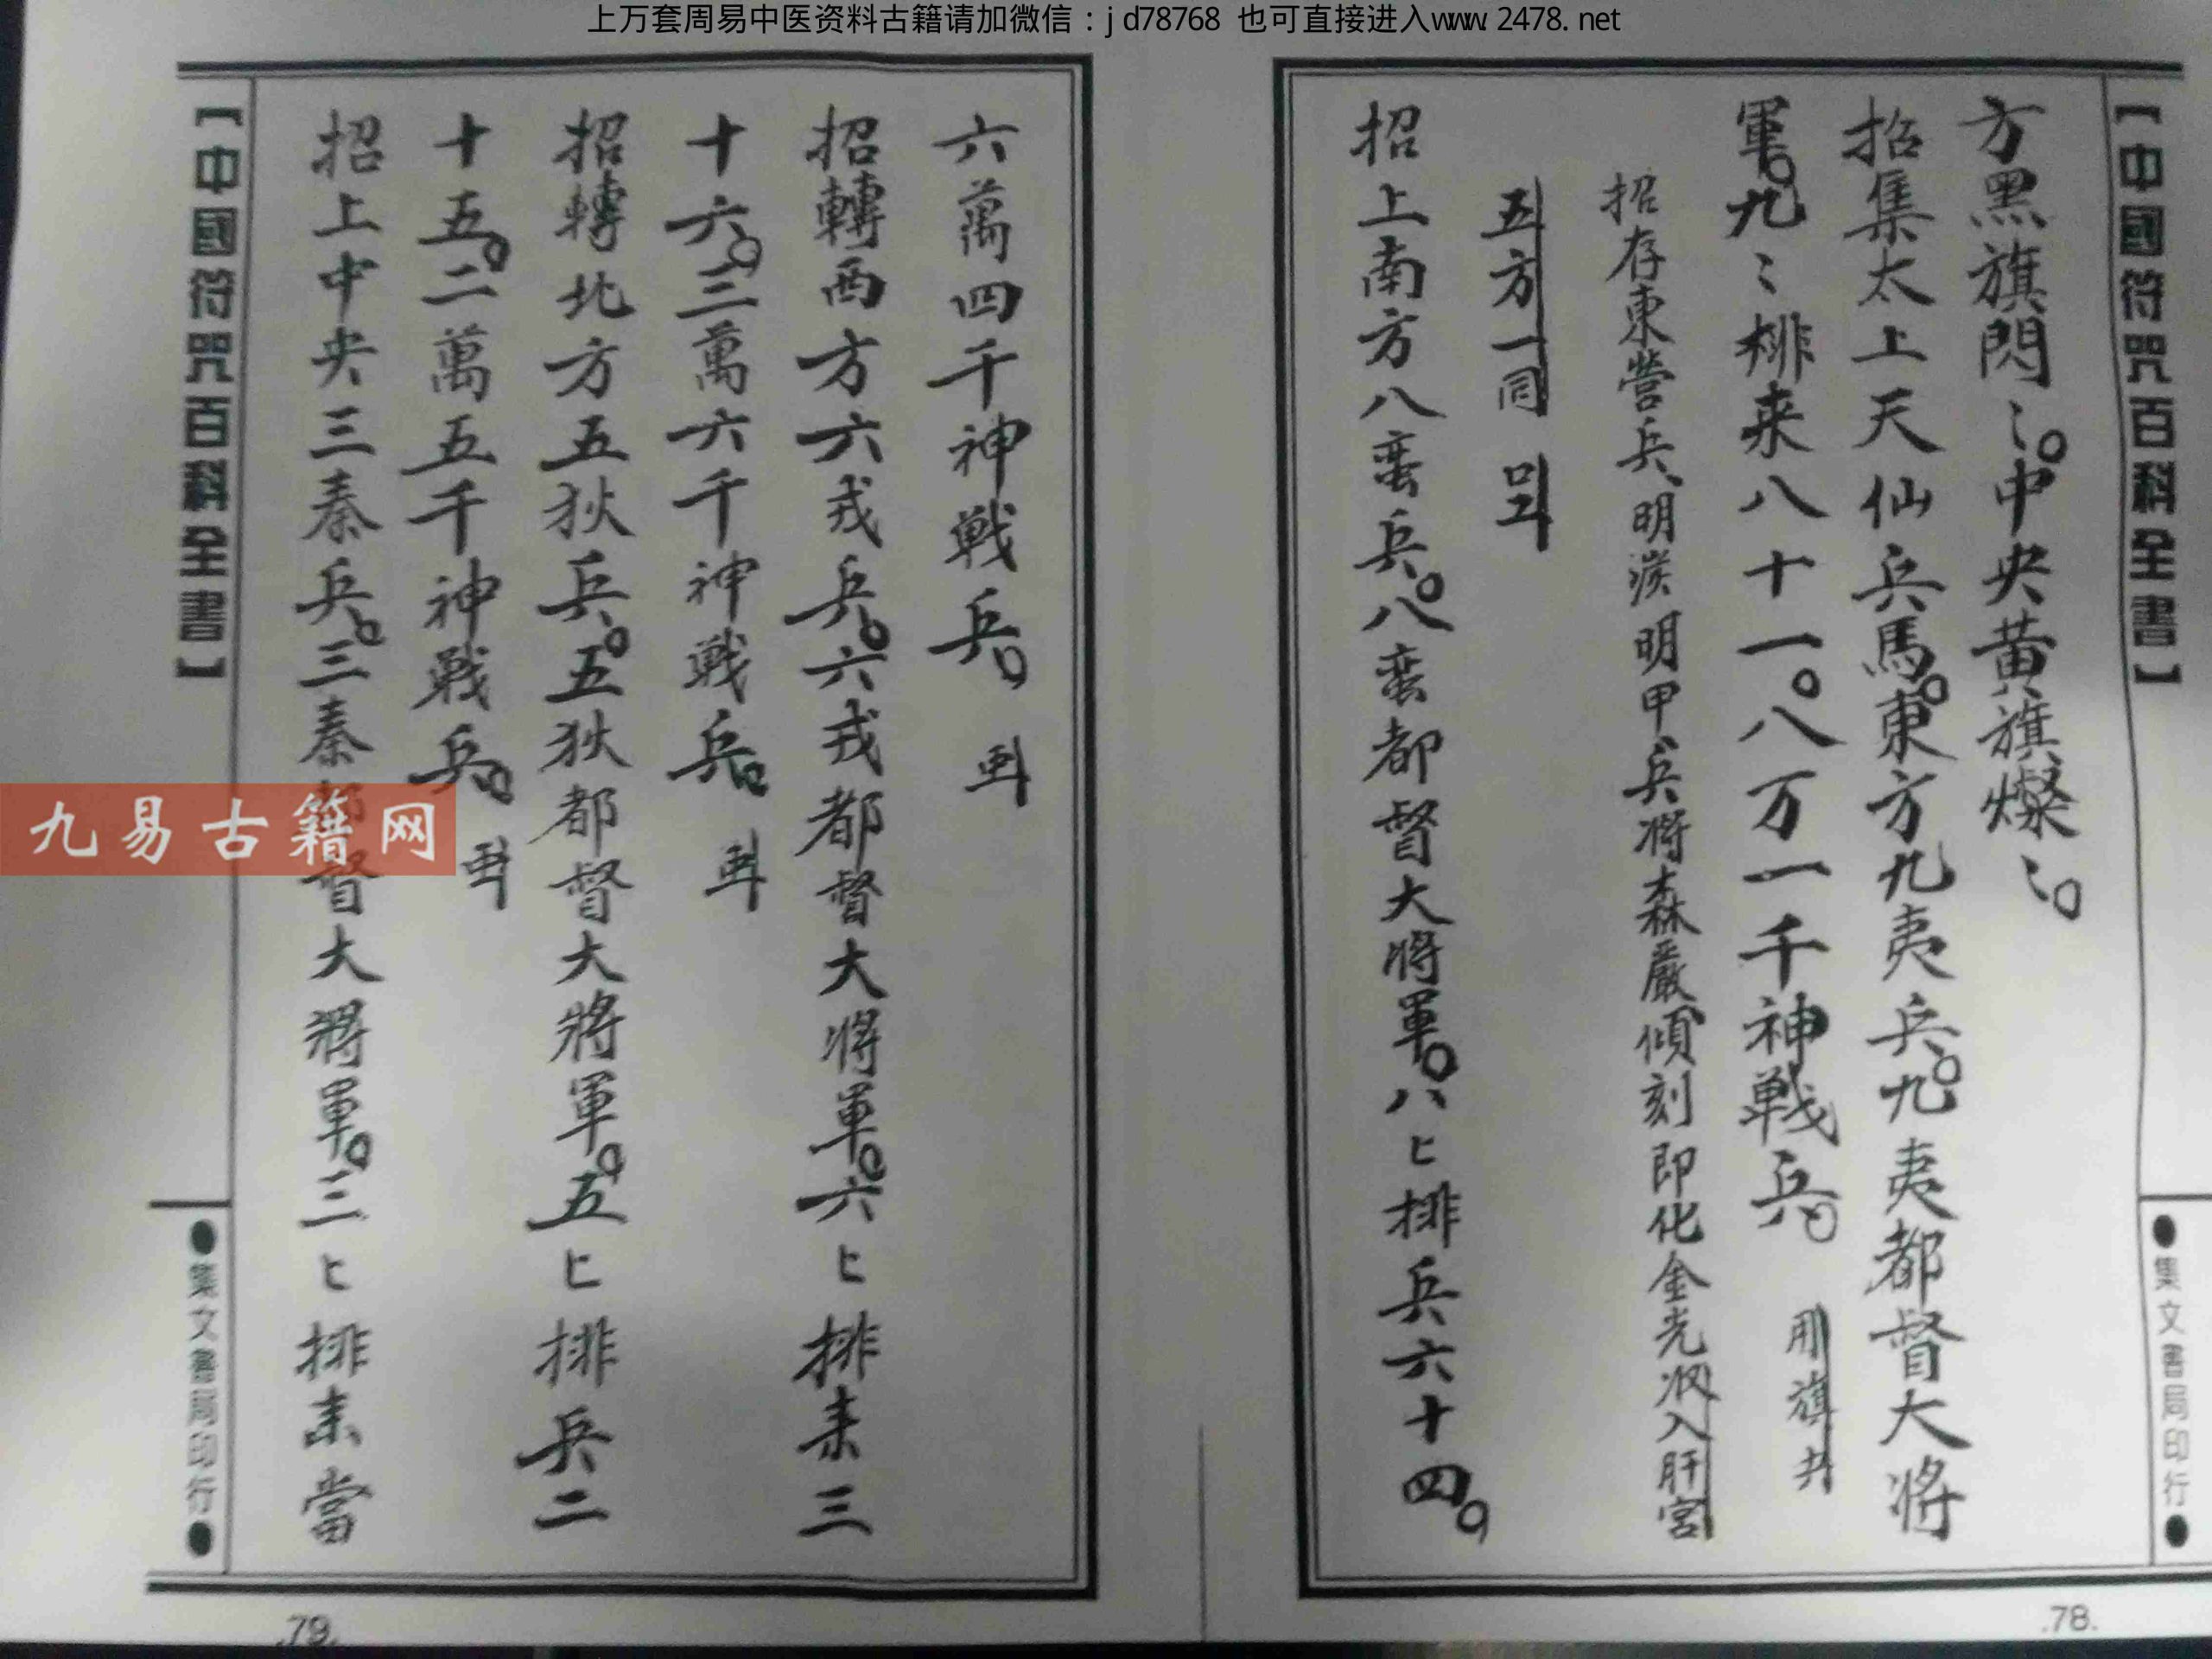 上万套周易中医资料古籍请加微信：jd78768 也可直接进入www.2478.net
【中國符咒百科全書】
●集文書局印行●
方黑旗閃〻。中央黃旗燦〻。
招集太上天仙兵馬。東方九夷兵。九夷都督大将
軍。九〻排来八十一。八万一千神戦兵。用旗共
招存東營兵、明 明甲、兵將森嚴傾刻即化金光収入肝宮
五方一同
招上南方八蛮兵。八蛮都督大将軍。八〻排兵六十四。
.78.
六萬四千神戦兵。
招轉西方六戎兵。六戎都督大将軍。六〻排来三
十六。三萬六千神戦兵。
招轉北方五狄兵。五狄都督大將軍。五〻排兵二
十五。二萬五千神戦兵。
招上中央三秦兵。三秦都督大將軍。三〻排来當
【中國符咒百科全書】
●集文書局印行●
.79.
九易古籍网